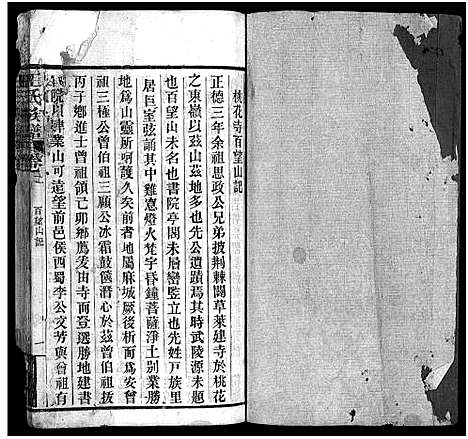 桃花寺百望山記
正德三年余祖思政公兄弟披荆棘闢草萊建寺於桃花
之東嶺以茲山茲地多也先公遺蹟焉其時武陵源未題
也百望山未名也書院亭閣未層巒監立也先姓戸族里
居巨室弦誦其中雞窻燈火梵宇昏鐘菩薩淨土别業勝
地為山靈所呵護久矣前者地屬麻城厥後析而為安曾
伯祖三極公曾伯祖三顧公冰霜鼓篋潛心於茲曾伯祖拔
丙子鄉進士曾祖領己卯鄉薦发由寺而登選勝地建書
院以肄業山可遠望前邑侯西蜀李公文芳與曾祖有
氏族譜
百望山記
一